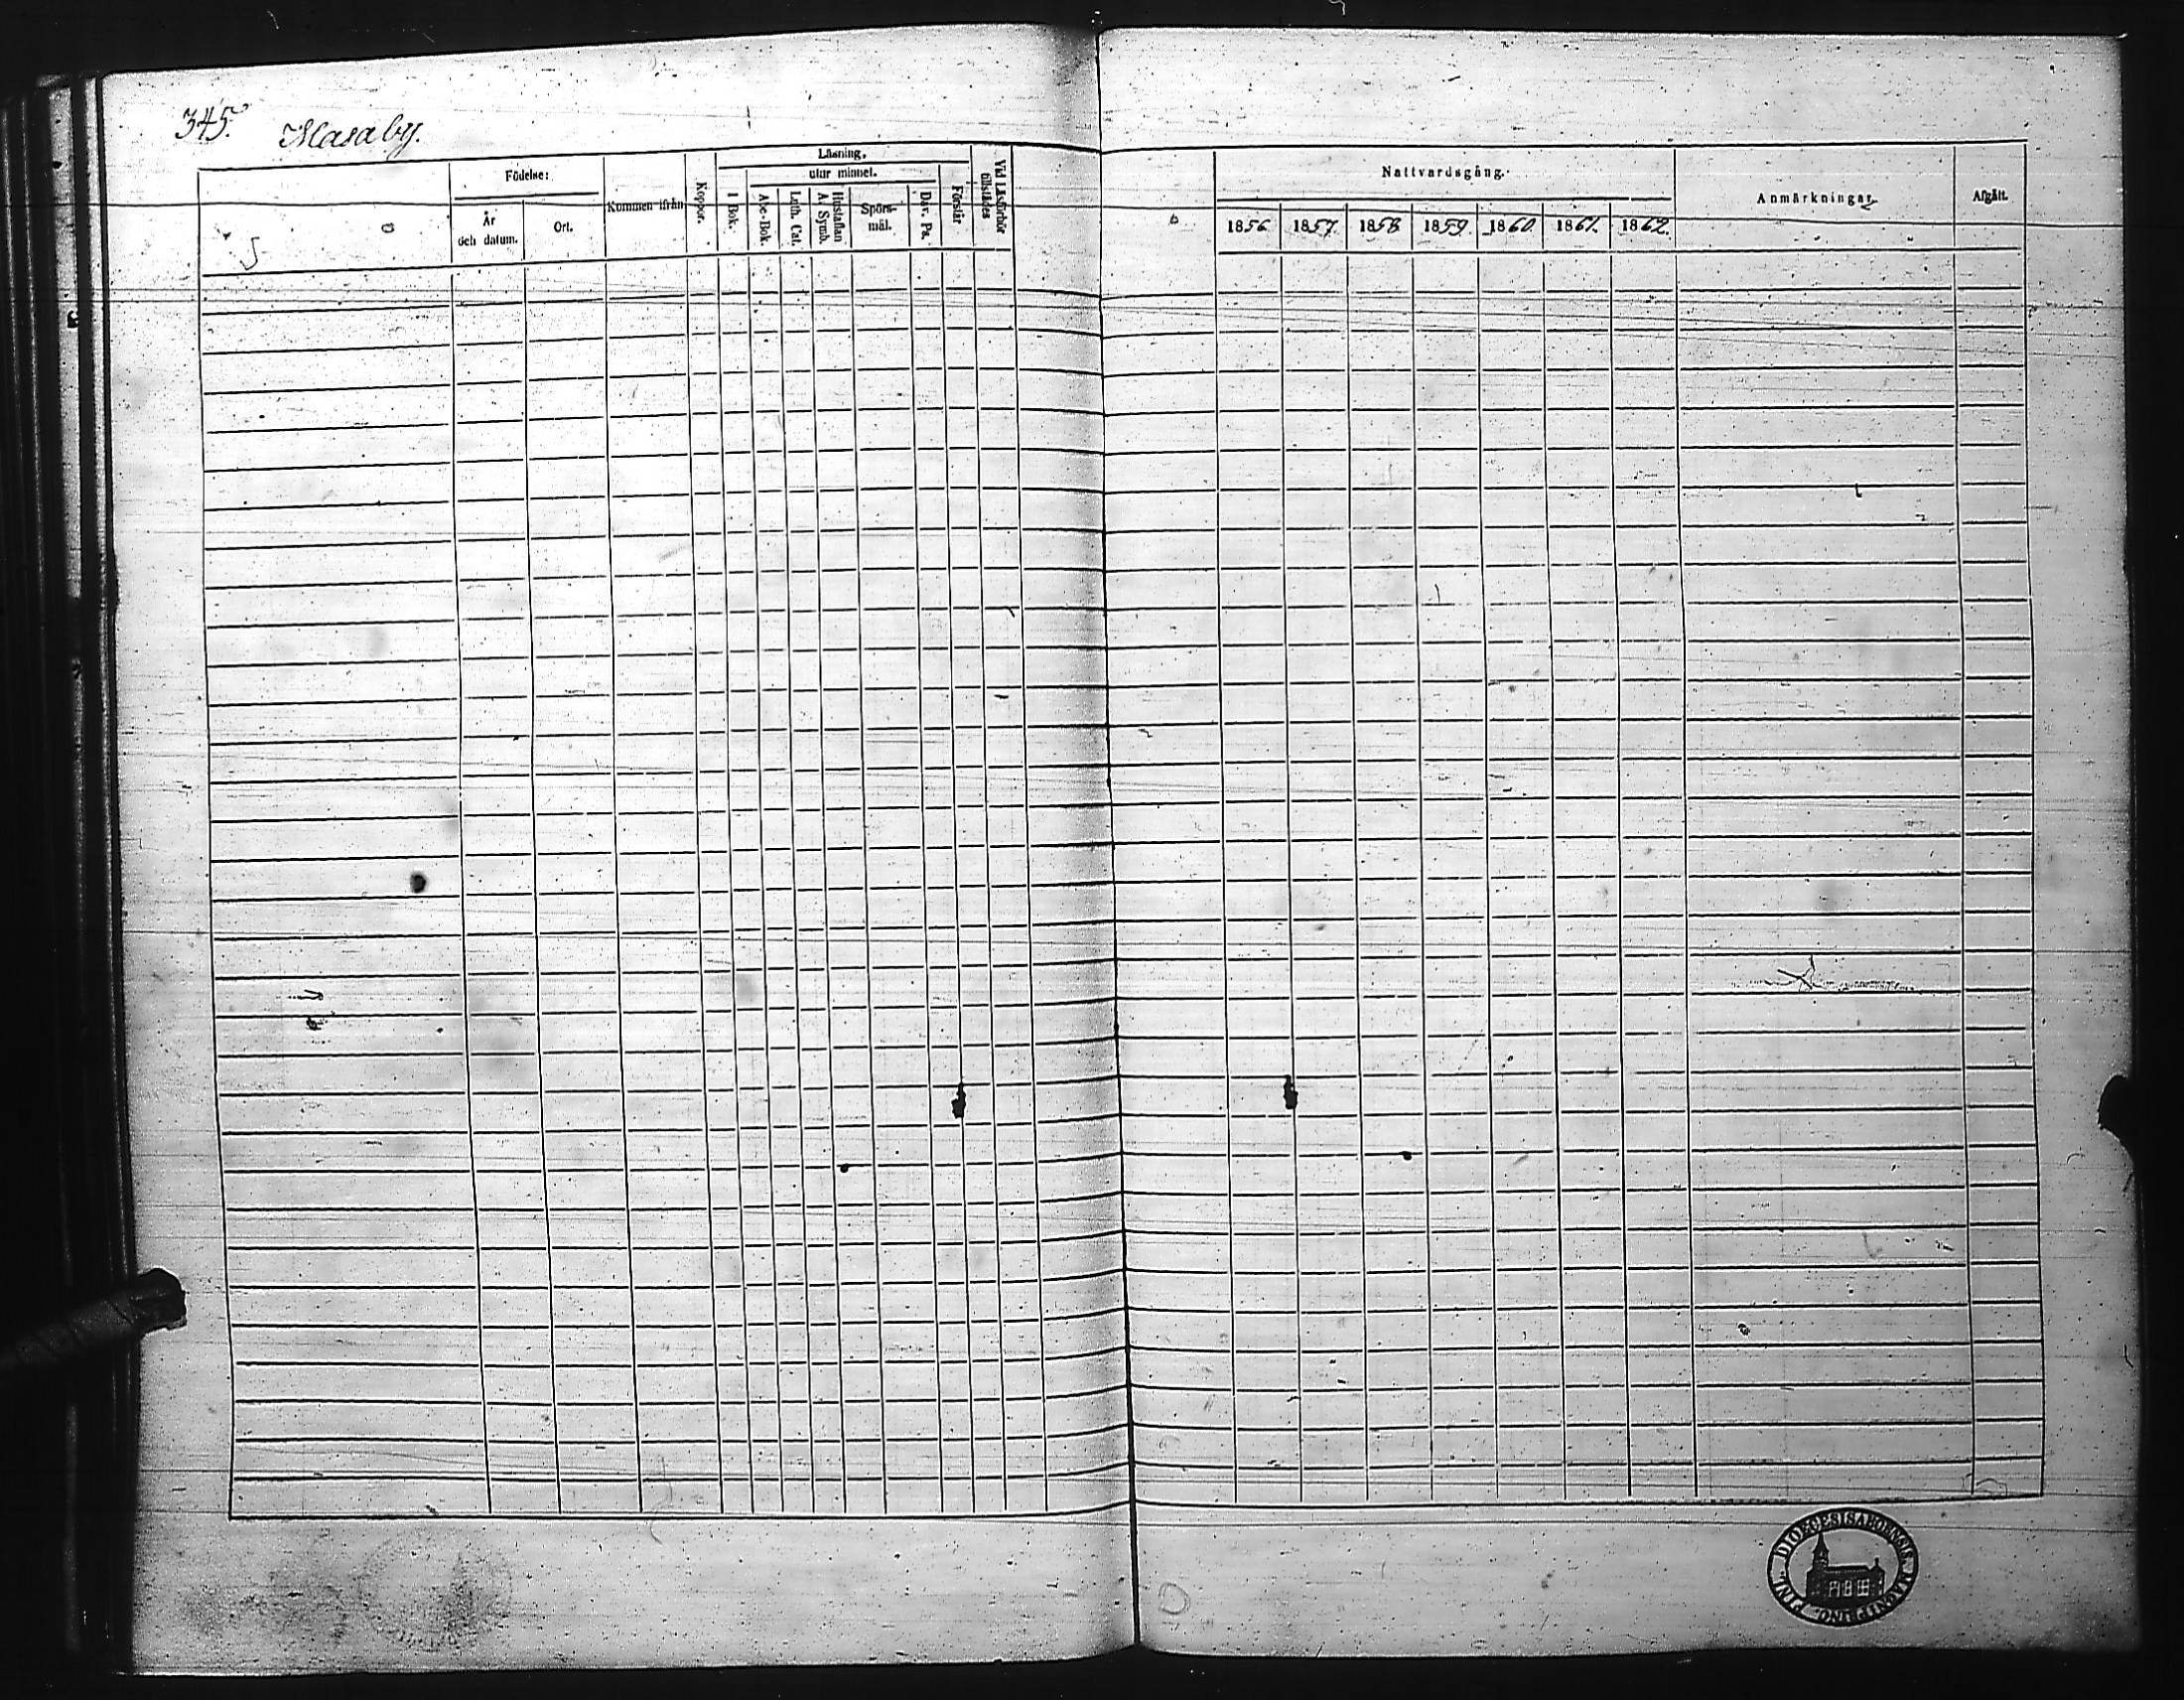 345. Masaby.
Födelse:
År och datum.
Ort.
Kommen ifrån
Koppor.
Läsning,
utur minnet.
I Bok.
Abc-Bok.
Luth. Cat.
Hustaflan A. Symb.
Spörs-mål.
Dav. Ps.
Förstår
Vid Läsförhör tillstädes
Nattvardsgång.
1856 1857 1858 1859 1860 1861. 1862.
Anmärkningar
Afgått.